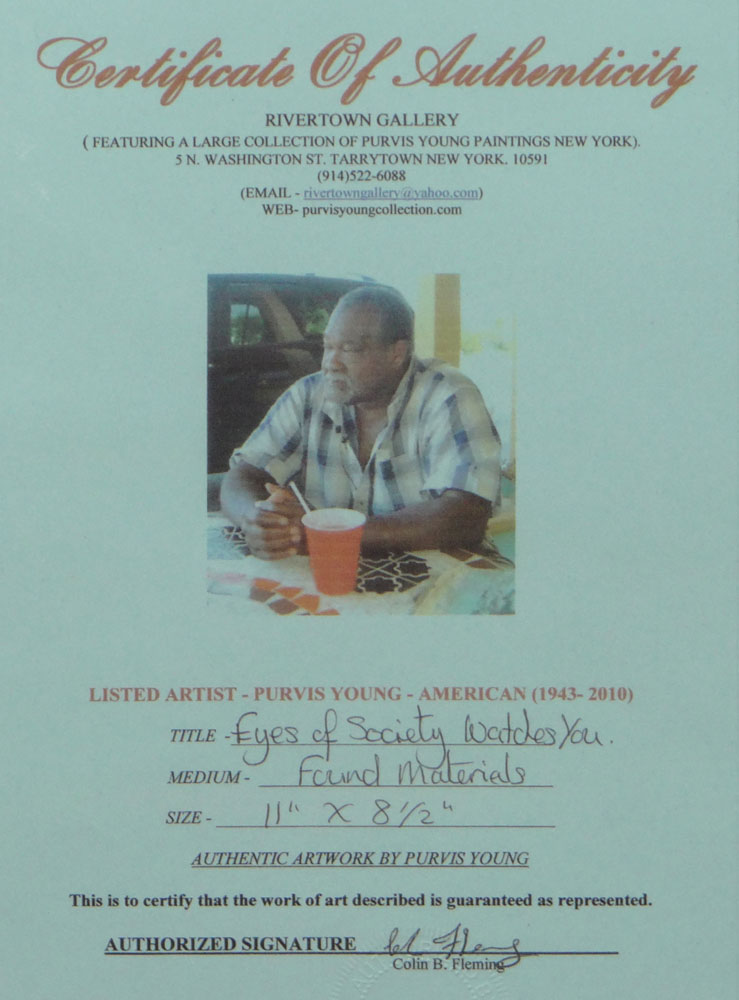 Certificate Of Authenticity
RIVERTOWN GALLERY
( FEATURING A LARGE COLLECTION OF PURVIS YOUNG PAINTINGS NEW YORK).
5 N. WASHINGTON ST. TARRYTOWN NEW YORK. 10591
(914)522-6088
(EMAIL - rivertowngallery@yahoo.com)
WEB- purvisyoungcollection.com
LISTED ARTIST - PURVIS YOUNG - AMERICAN (1943- 2010)
TITLE - Eyes of Society Watches You.
MEDIUM - Found Materials
SIZE - 11" X 8 1/2"
AUTHENTIC ARTWORK BY PURVIS YOUNG
This is to certify that the work of art described is guaranteed as represented.
AUTHORIZED SIGNATURE
Colin B. Fleming